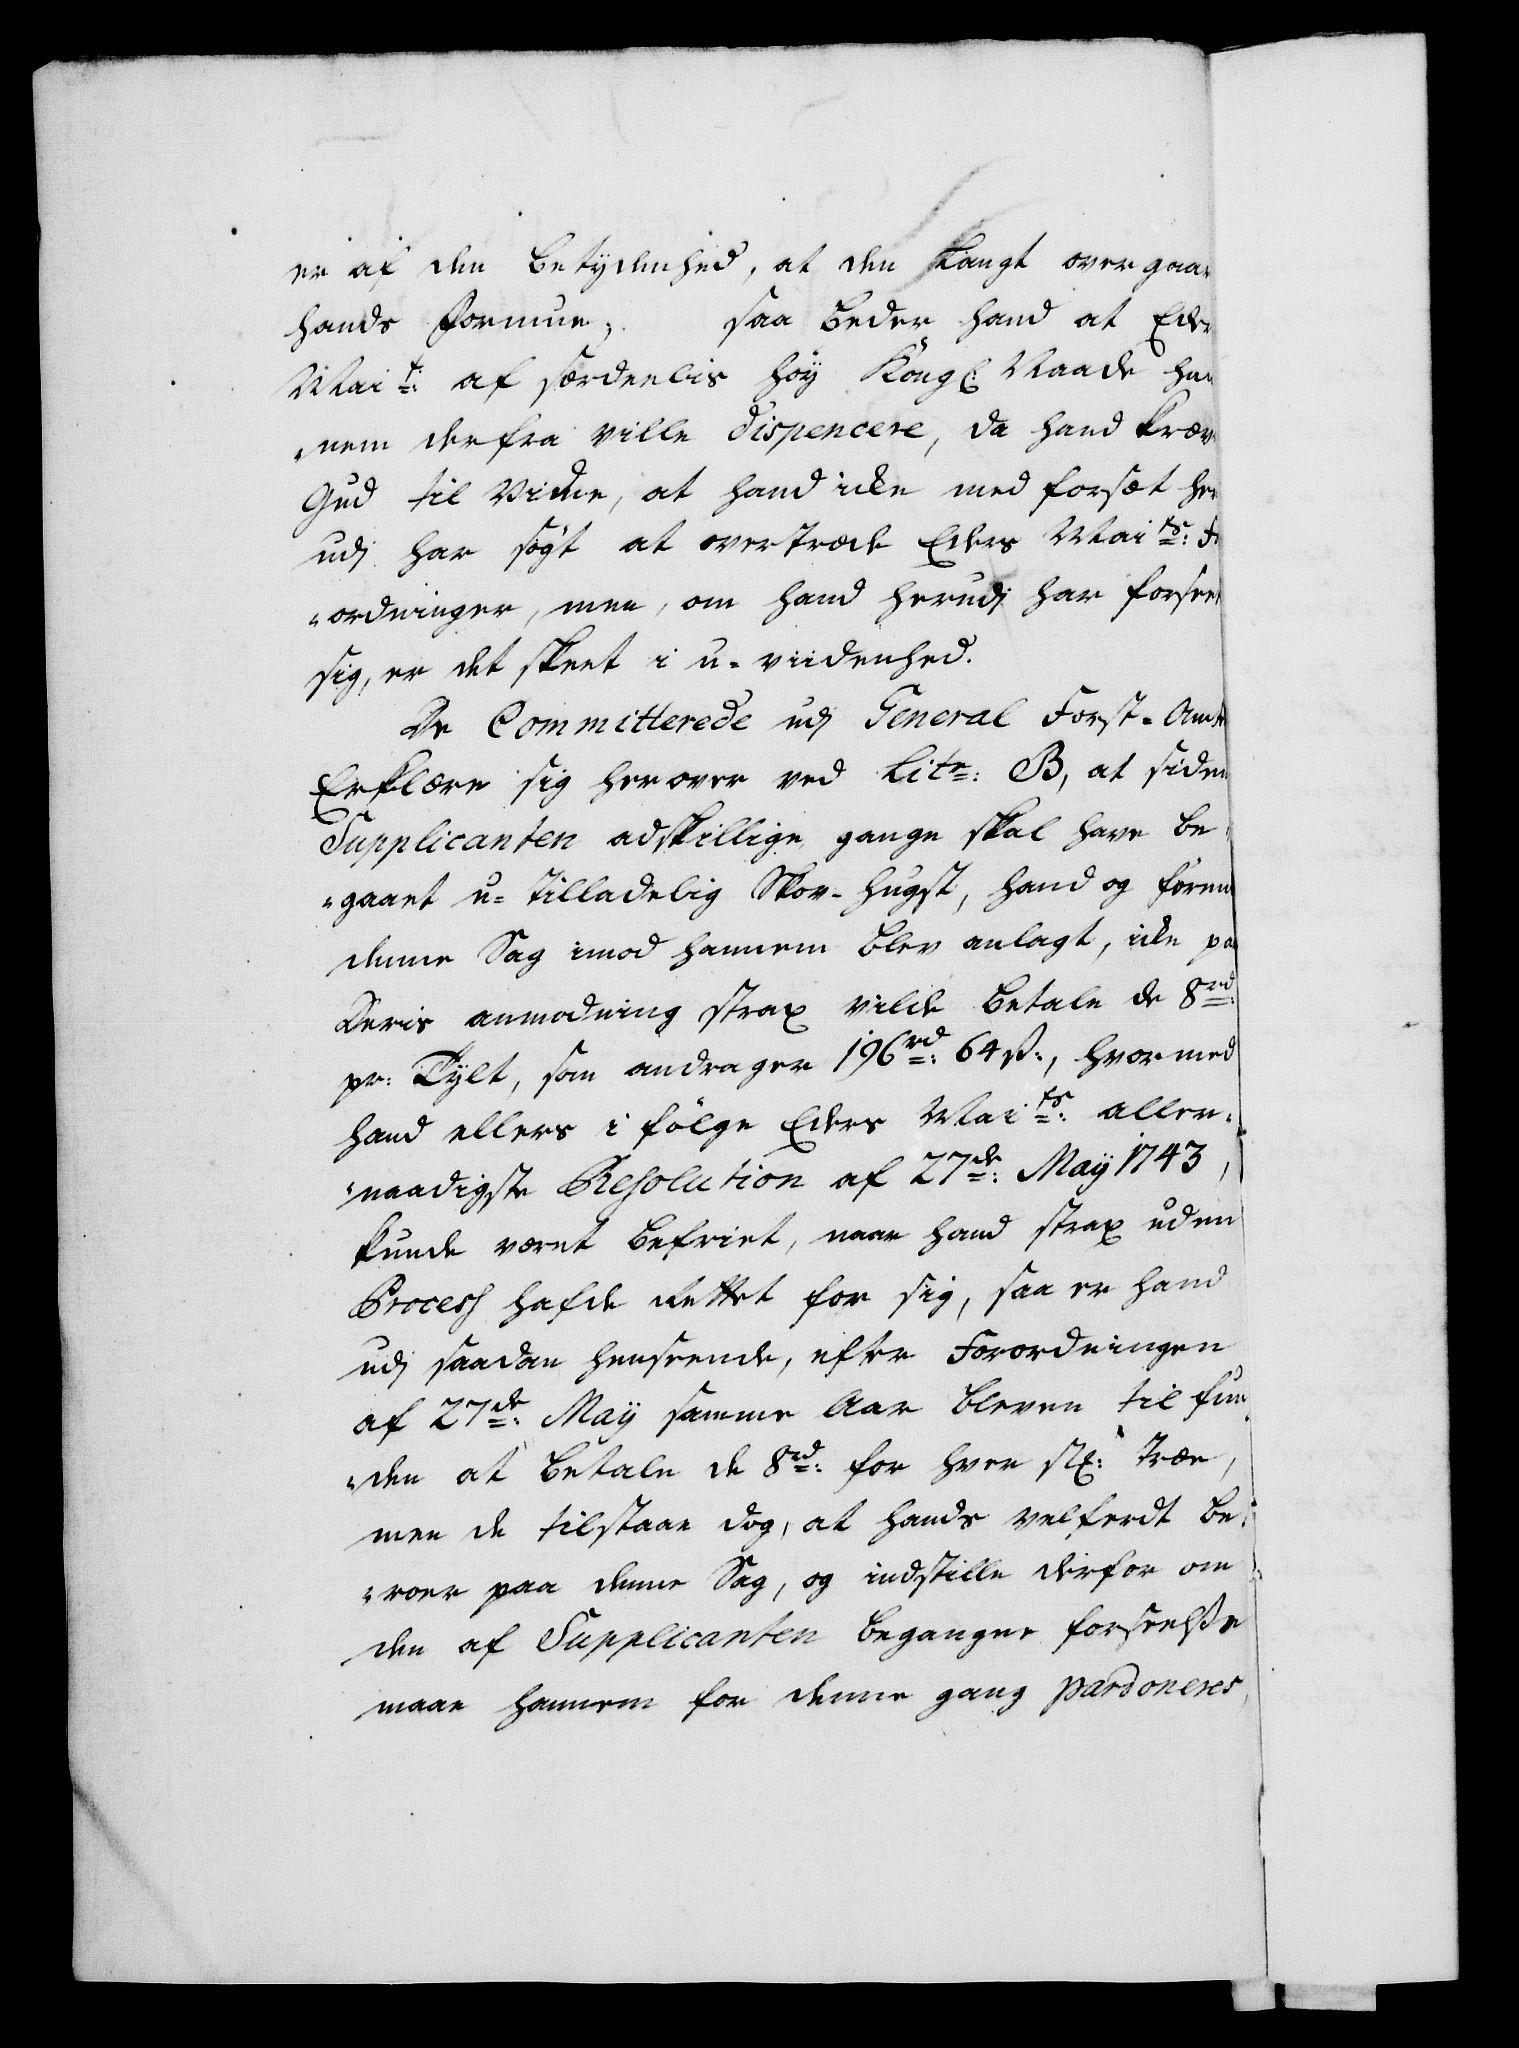 er af den betydenhed, at den langt overgaar
hands formue; saa beder hand at Eder
Mai:t: af særdeelis höy Kongl: Naade han
„nem derfra ville dispencere, da hand kræv
Gud til Vidne, at hand icke med forsæt her
udj har sögt at overtræde Eders Mai:ts: F:
„ordninger, men, om hand herudj har forseet
sig, er det skeet i u-viidenhed.
De Committerede udj General Forst-Amte
Erklære sig herover ved Litr: B, at siden
Supplicanten adskillige gange skal have be„
„gaaet u-tilladelig Skov-hugst, hand og foren
denne Sag imod hannem blev anlagt, icke paa
Deris anmodning strax vilde betale de 8 rd:
pr: Tylt, som andrager 196 rd: 64 ß:, hvormed
hand ellers i fölge Eders Mai:ts: aller„
„naadigste Resolution af 27de: Maÿ 1743,
kunde været befriet, naar hand strax uden
Process hafde rettet for sig, saa er hand
udj saadan henseende, efter Forordningen
af 27de: Maÿ samme Aar bleven til fun„
„den at betale de 8 rd: for hver st: Træe,
men de tilstaae dog, at hands velferdt be„
„roer paa denne Sag, og indstille derfor om
den af Supplicanten begangne forseelse
maae hannem for denne gang pardoneres,